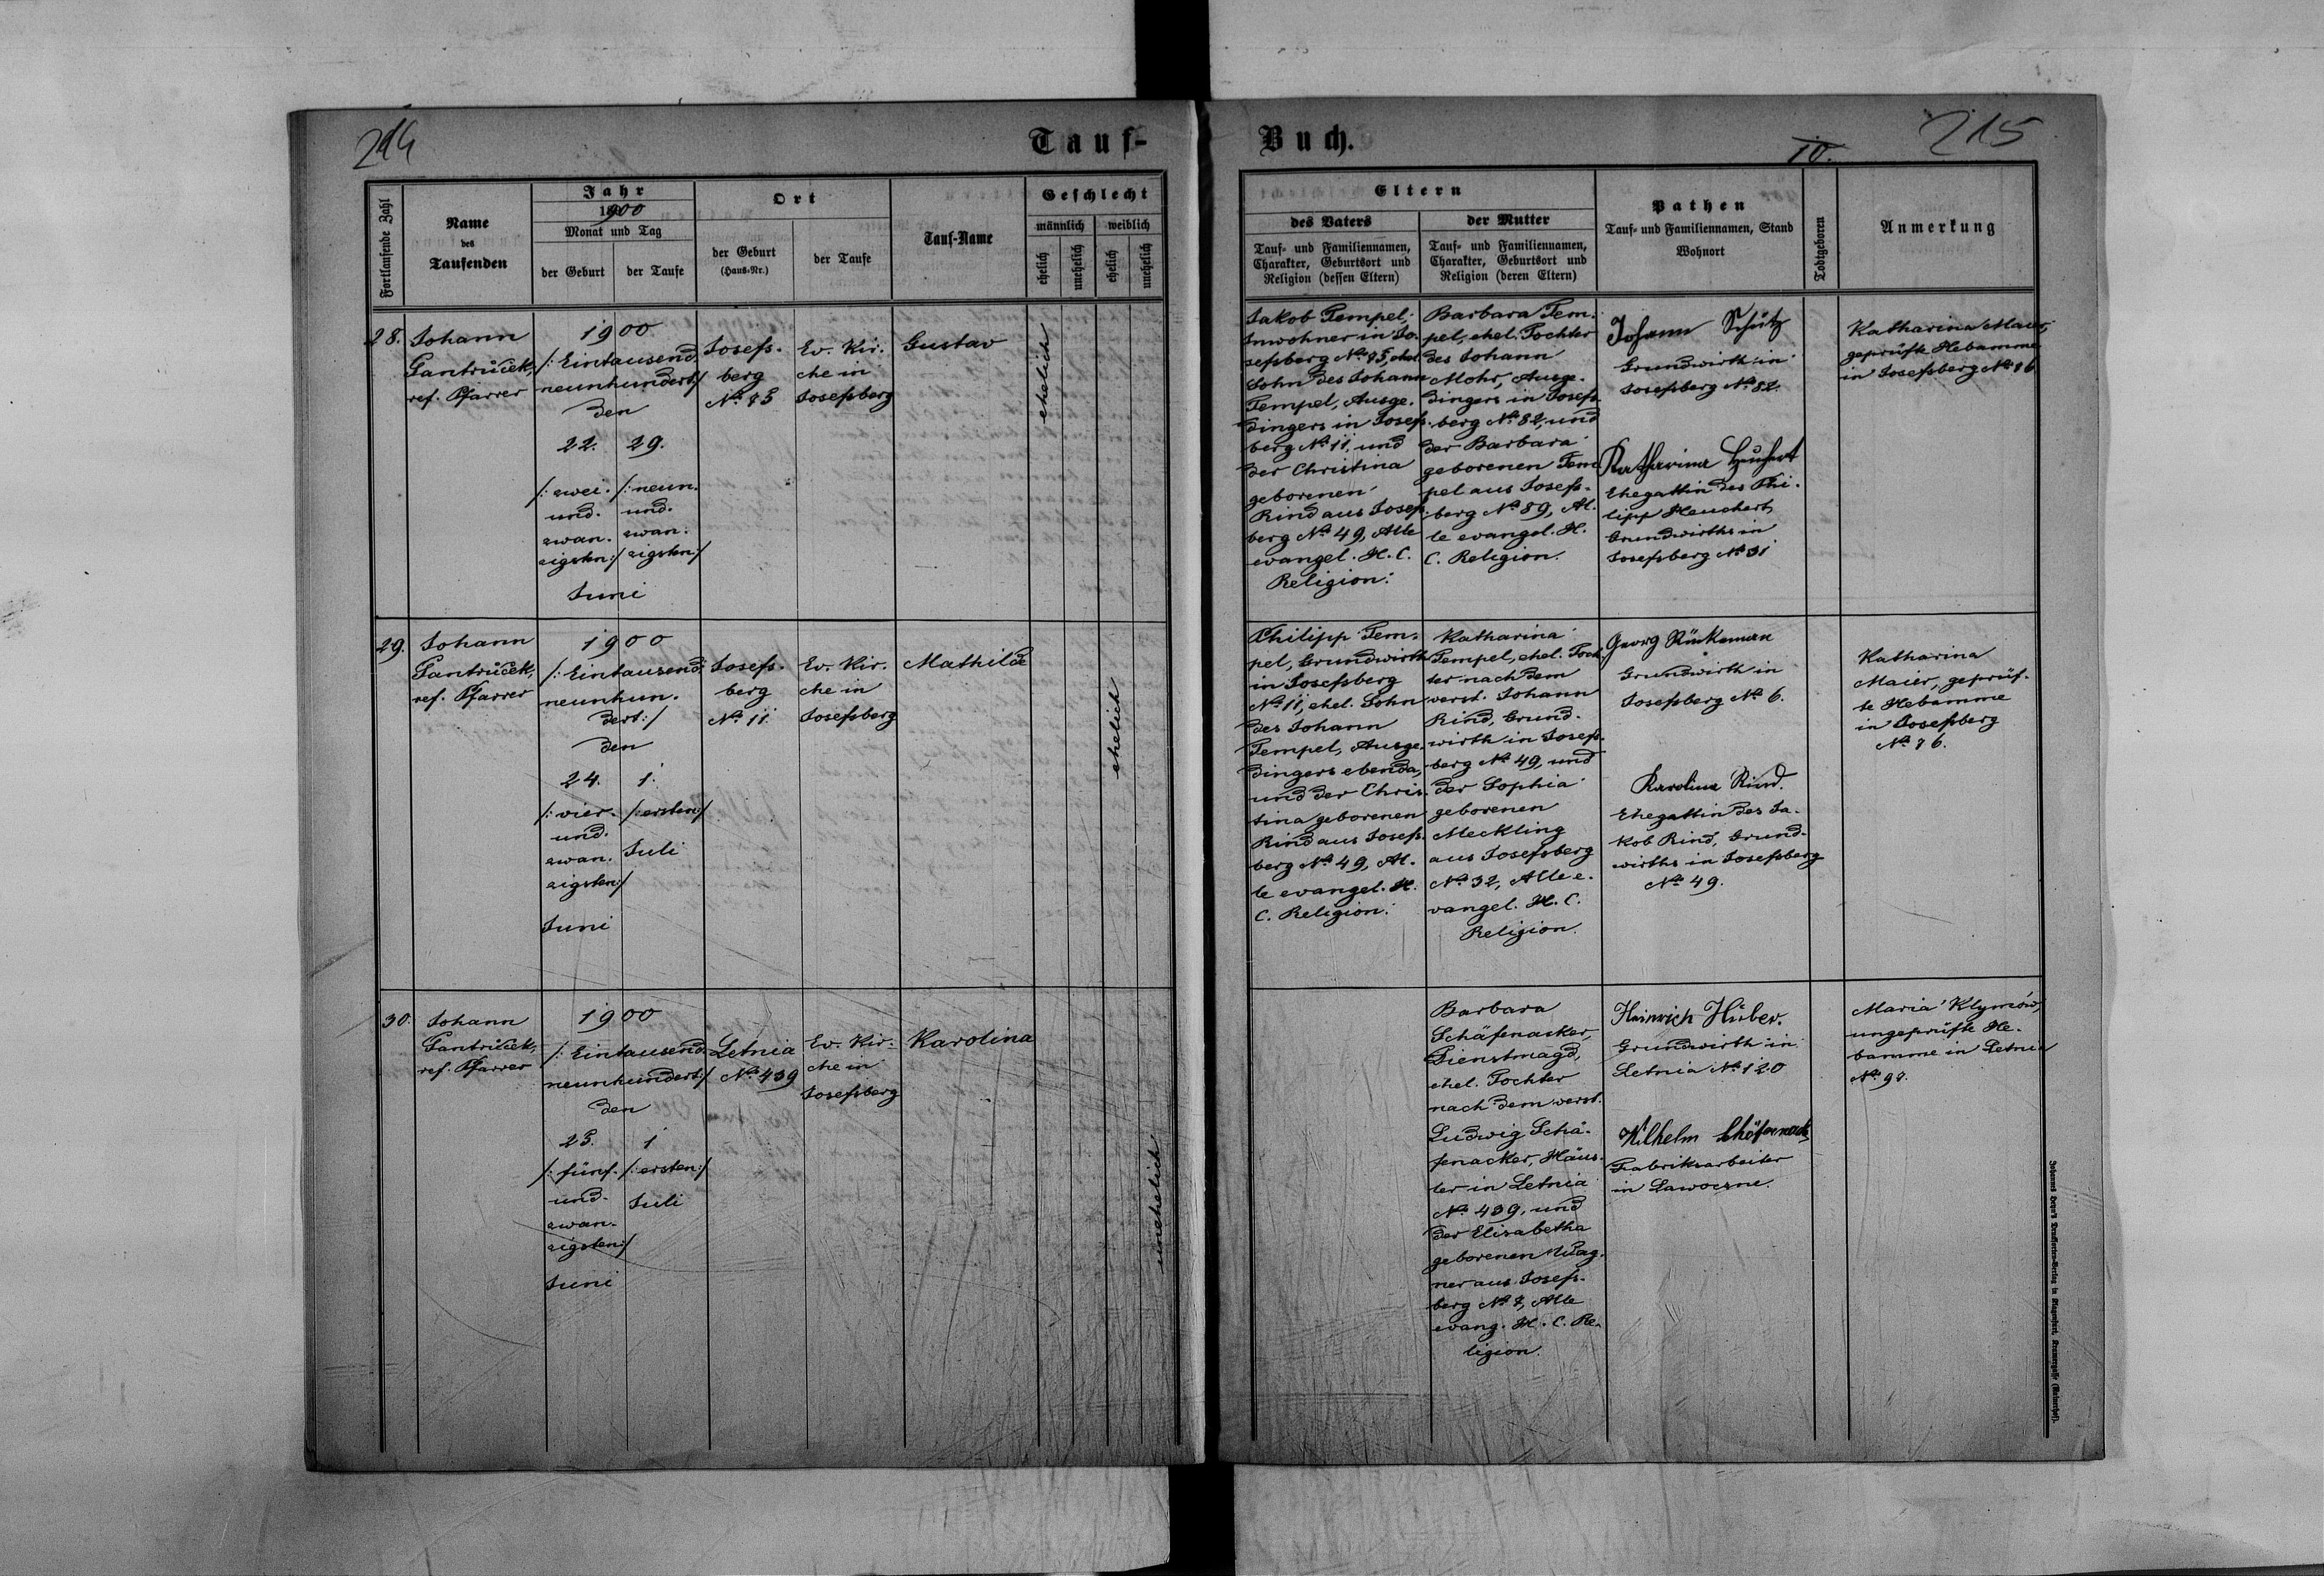 214
Tauf-
Fortlaufende Zahl
Name
des
Taufenden
Jahr
1900
Monat und Tag
der Geburt
der Taufe
Ort
der Geburt
(Haus-Nr.)
der Taufe
Tauf-Name
Geschlecht
männlich
weiblich
ehelich
unehelich
ehelich
unehelich
28.
Johann
ref. Pfarrer
1900
/: Eintausend
neunhundert :/
den
22. 29.
/: zwei- /: neun-
und- und-
zwan- zwan-
zigsten :/ zigsten :/
Juni
Josefs-
berg
Ev. Kir-
che in
Josefsberg
Gustav
ehelich
29.
Johann
ref. Pfarrer
1900
/: Eintausend
neunhun-
dert :/
den
24. 1.
/: vier- /: ersten :/
und-
zwan- Juli
zigsten :/
Juni
Josefs-
berg
No 11.
Ev. Kir-
che in
Josefsberg
Mathilde
ehelich
30.
Johann
ref. Pfarrer
1900
/: Eintausend
neunhundert :/
den
25. 1
/: fünf- /: ersten :/
und- Juli
zwan-
zigsten :/
Juni
Letnia
Ev. Kir-
che in
Josefsberg
Karolina
unehelich
Buch.
10.
215
Eltern
des Vaters
Tauf- und Familiennamen,
Charakter, Geburtsort und
Religion (dessen Eltern)
der Mutter
Tauf- und Familiennamen,
Charakter, Geburtsort und
Religion (deren Eltern)
Pathen
Tauf- und Familiennamen, Stand
Wohnort
Todtgeboren
Anmerkung
Jakob Tempel,
Inwohner in Jo-
sefsberg No 85, ehel.
Sohn des Johann
Tempel, Ausge-
dingers in Josefs-
berg No 11, und
der Christina
geborenen
Rind aus Josefs-
berg No 49, Alle
evangel. H. C.
Religion.
Barbara Tem-
pel, ehel. Tochter
des Johann
Mohr, Ausge-
dingers in Josefs-
berg No 82, und
der Barbara
geborenen Tem-
pel aus Josefs-
berg No 89, Al-
le evangel. H.
C. Religion.
Johann Schütz
Grundwirth in
Josefsberg No 82.
Katharina Heuchert
Ehegattin des Phi-
lipp Heuchert,
Grundwirths in
Josefsberg No 31
Katharina Maier,
geprüfte Hebamme
in Josefsberg No 86
Philipp Tem-
pel, Grundwirth
in Josefsberg
No 11, ehel. Sohn
des Johann
Tempel, Ausge-
dingers ebenda,
und der Chris-
tina geborenen
Rind aus Josefs-
berg No 49, Al-
le evangel. H.
C. Religion.
Katharina
Tempel, ehel. Toch-
ter nach dem
verst. Johann
Rind, Grund-
wirth in Josefs-
berg No 49, und
der Sophia
geborenen
Meckling
aus Josefsberg
No 32, Alle e-
vangel. H. C.
Religion.
Georg
Grundwirth in
Josefsberg No 6.
Karolina Rind.
Ehegattin des Ja-
kob Rind, Grund-
wirths in Josefsberg
No 49.
Katharina
Maier, geprüf-
te Hebamme
in Josefsberg
No 86.
Barbara
Schäfenacker,
Dienstmagd,
ehel. Tochter
nach dem verst.
Ludwig Schä-
fenacker, Häus-
ler in Letnia
No 439, und
der Elisabetha
geborenen Wag-
ner aus Josefs-
berg No 7, Alle
evang. H. C. Re-
ligion.
Heinrich Huber.
Grundwirth in
Letnia No 120
Wilhelm
Fabriksarbeiter
in Lawoczne.
Maria Klymów,
ungeprüfte He-
bamme in Letnia